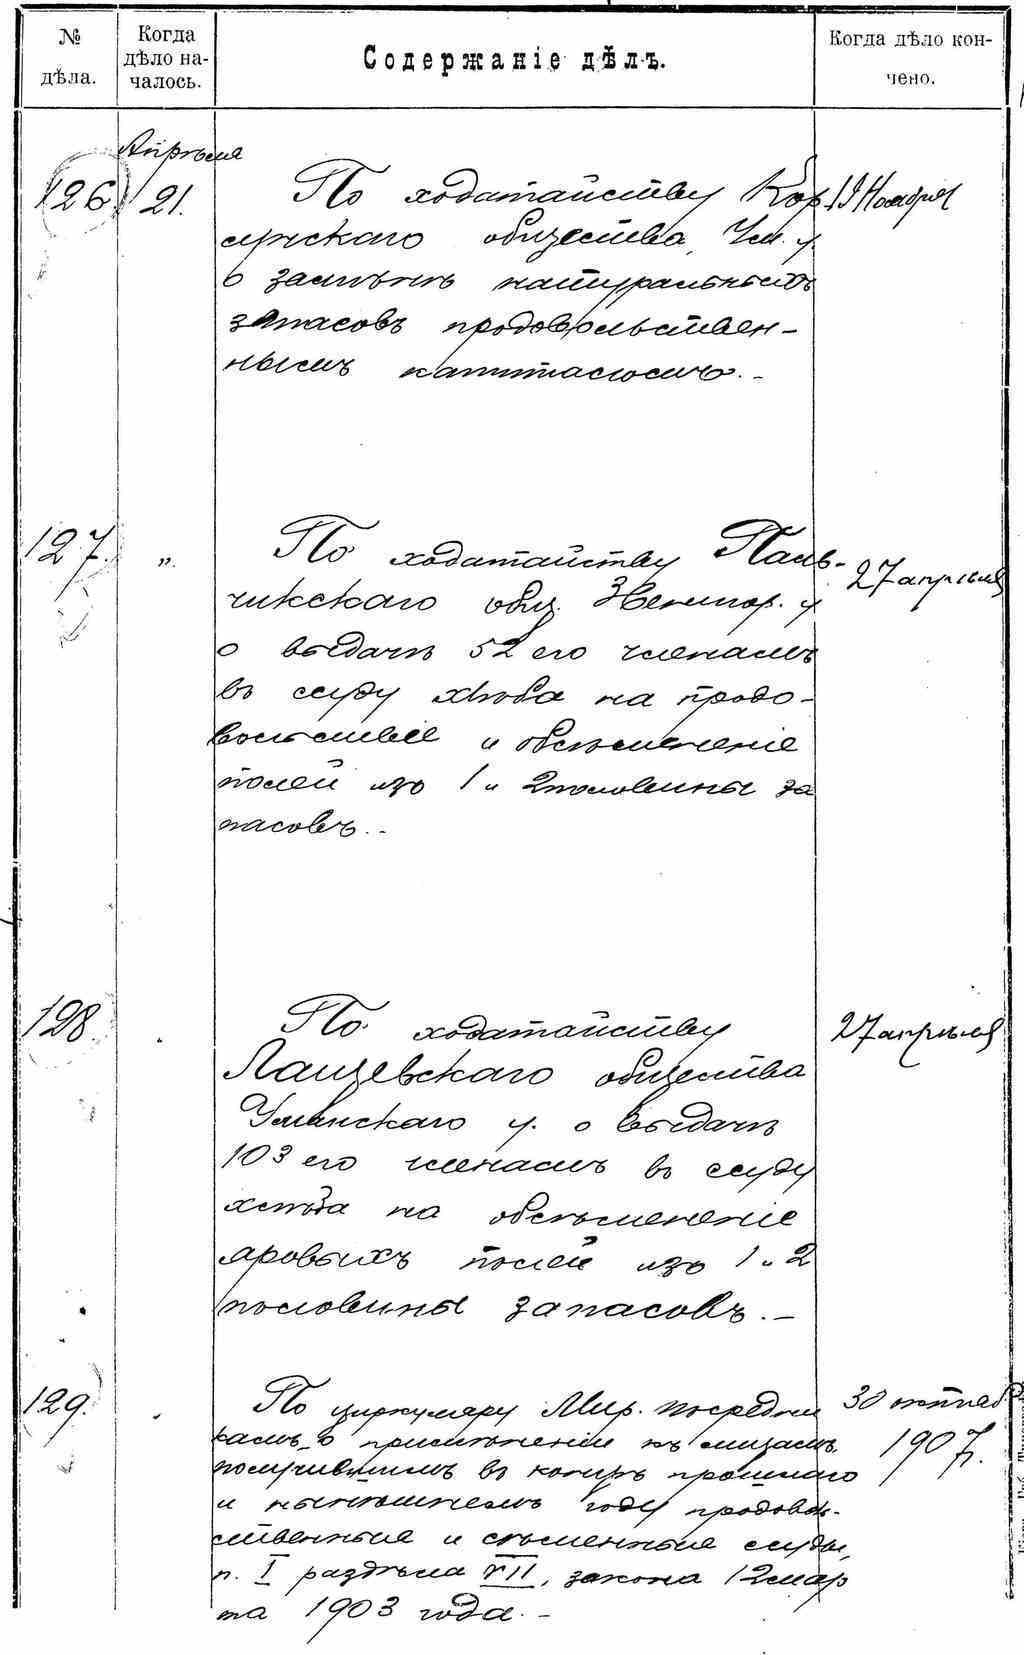 № дѣла.
Когда дѣло началось.
Содержаніе дѣлъ.
Когда дѣло кончено.
Апрѣля
126. 21. По ходатайству Кор- 19 Ноября
сунскаго общества, Ум. у.
о замѣнѣ натуральныхъ
запасовъ продовольствен-
нымъ капиталомъ. –
127. „ По ходатайству Паль- 27 апрѣля
чикскаго общ. Звенигор. у
о выдачѣ 52 его членамъ
въ ссуду хлѣба на продо-
вольствіе и обсѣмененіе
полей изъ 1 и 2 половины за
пасовъ. –
128. „ По ходатайству 27 апрѣля
Лащевскаго общества
Уманскаго у. о выдачѣ
103 его членамъ въ ссуду
хлѣба на обсѣмененіе
яровыхъ полей изъ 1 и 2
половины запасовъ. –
129. „ По циркуляру Мир. посредни 30 октяб
камъ о примѣненіи къ лицамъ, 1907 г.
получившимъ въ концѣ прошлаго
и нынѣшнемъ году продоволь-
ственныя и сѣменныя ссуды,
п. I раздѣла VII, закона 12 мар
та 1903 года. –